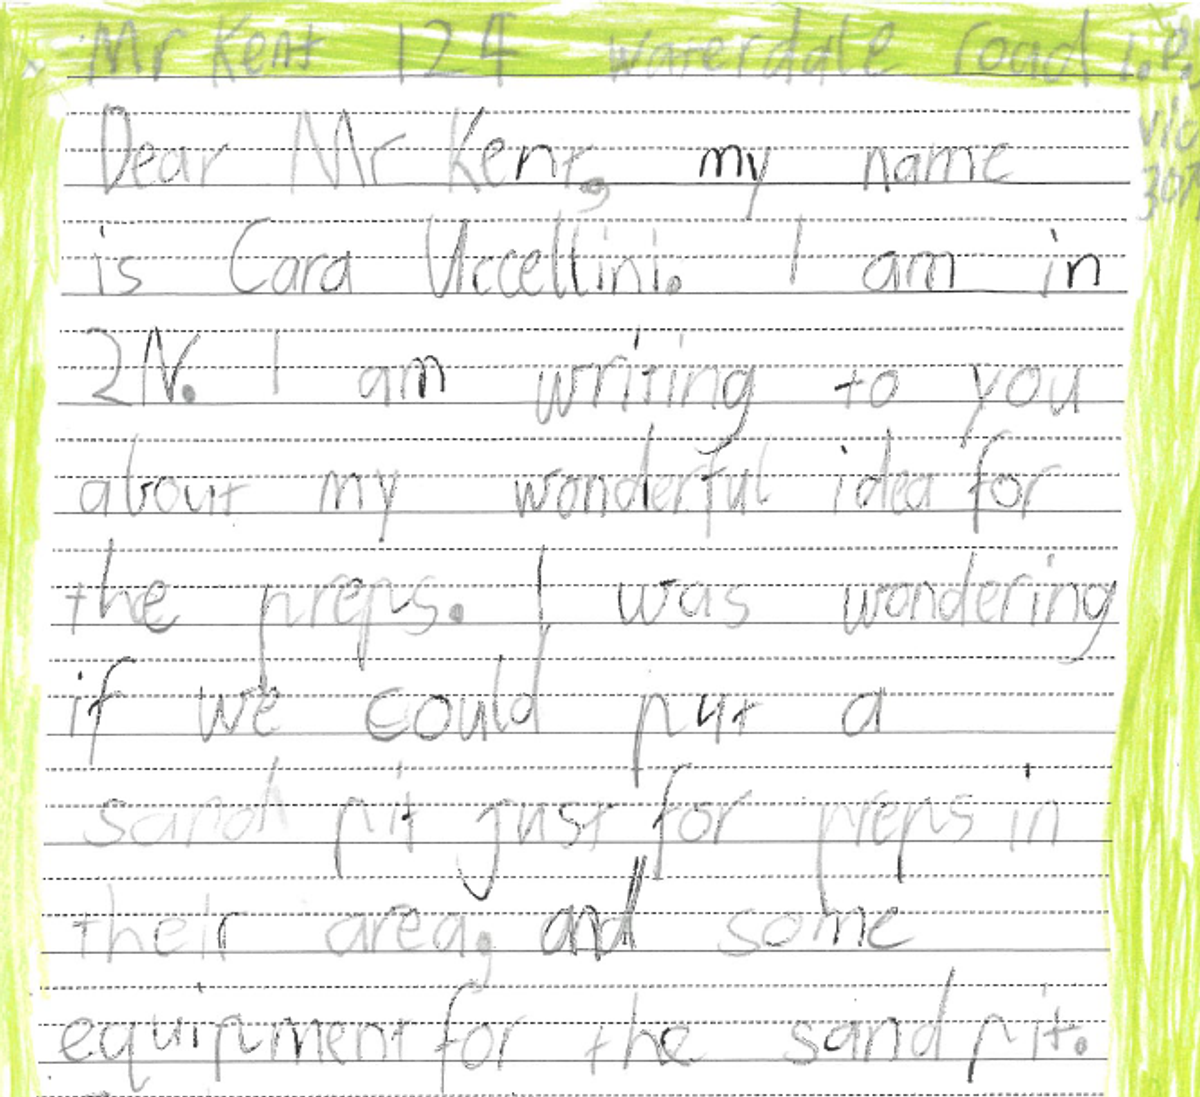 Mr Kent 124 waterdale road i.e.
vic
Dear Mr Kent, my name
is Cara Uccellini. I am in
2N. I am writing to you
about my wonderful idea for
the preps. I was wondering
if we could put a
sand pit just for preps in
their area, and some
equipment for the sand pit.